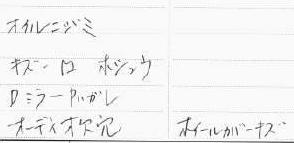 オイルニジミ
キズ・凹 ホシュウ
Dミラー ハガレ
オーディオ欠 ホイールカバーキズ